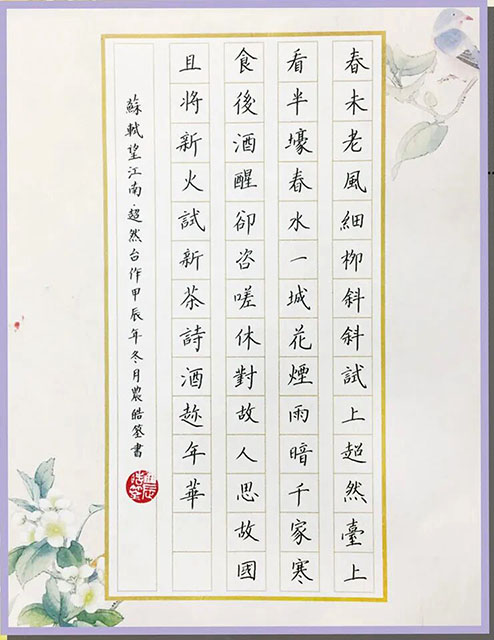 春未老風細柳斜斜試上超然臺上
看半壕春水一城花煙雨暗千家寒
食後酒醒卻咨嗟休對故人思故國
且將新火試新茶詩酒趂年華
蘇軾望江南·超然台作甲辰年冬月農皓筌書